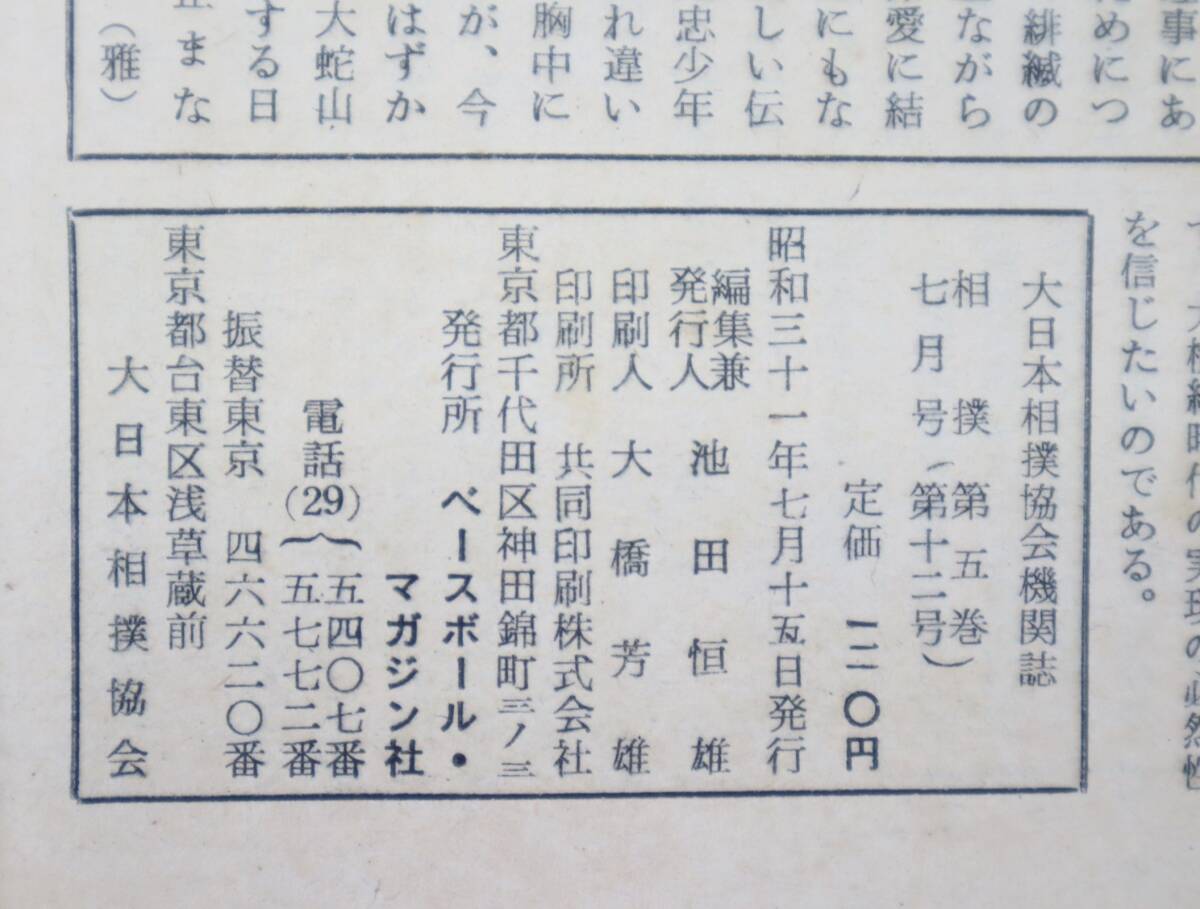 事にあ
めにつ
緋縅の
ながら
愛に結
にもな
しい伝
忠少年
れ違い
胸中に
が、今
はずか
大蛇山
する日
まな
(雅)
時代の実現の必然性
を信じたいのである。
大日本相撲協会機関誌
相撲 第五巻
七月号(第十二号)
定価 一二〇円
昭和三十一年七月十五日発行
編集兼
発行人 池田恒雄
印刷人 大橋芳雄
印刷所 共同印刷株式会社
東京都千代田区神田錦町三ノ三
発行所 ベースボール・
マガジン社
電話(29){五四〇七番
五七七二番
振替東京 四六六二〇番
東京都台東区浅草蔵前
大日本相撲協会